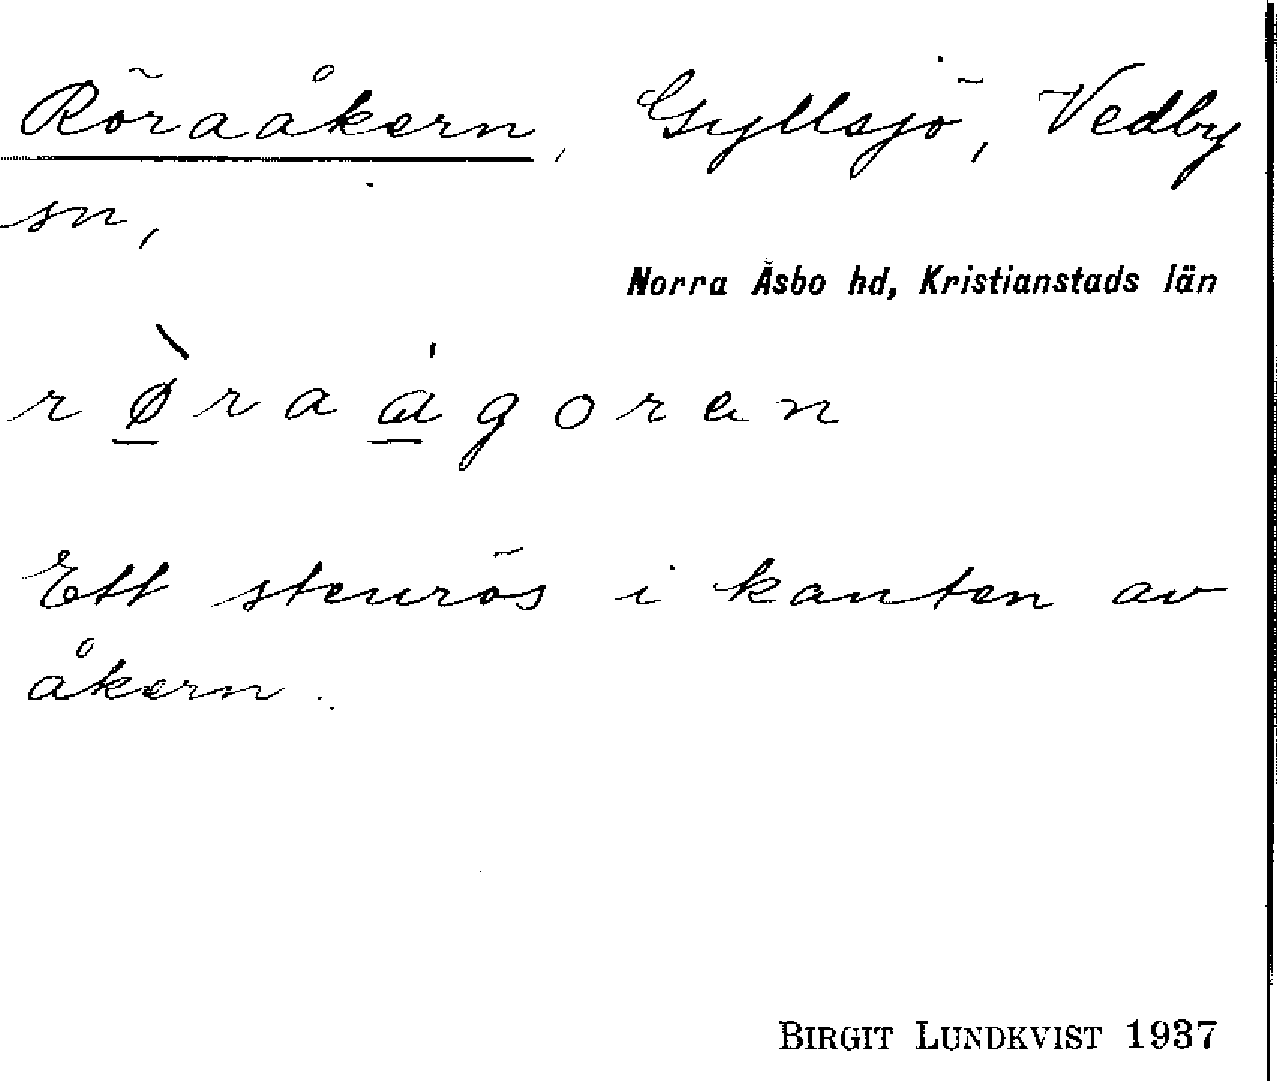 Röraåkern, Gyllsjö, Vedby
sn,
Norra Åsbo hd, Kristianstads län
r ø̀ r a a̍ g o r e n
Ett stenrös i kanten av
åkern.
BIRGIT LUNDKVIST 1937